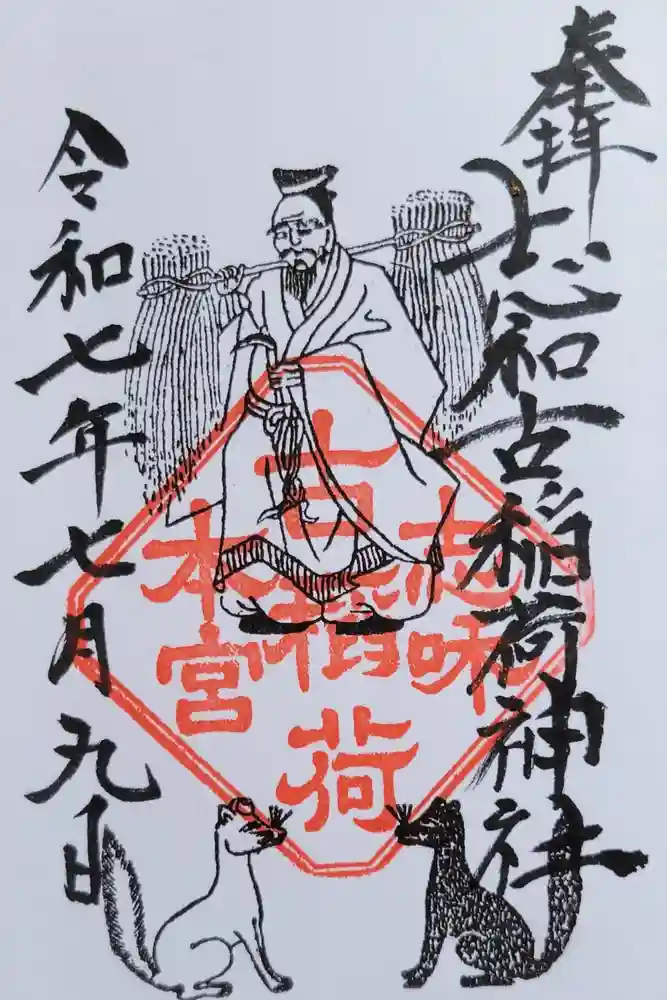 奉拝
志和古稲荷神社
志咊
古稲荷
本宮
令和七年七月九日